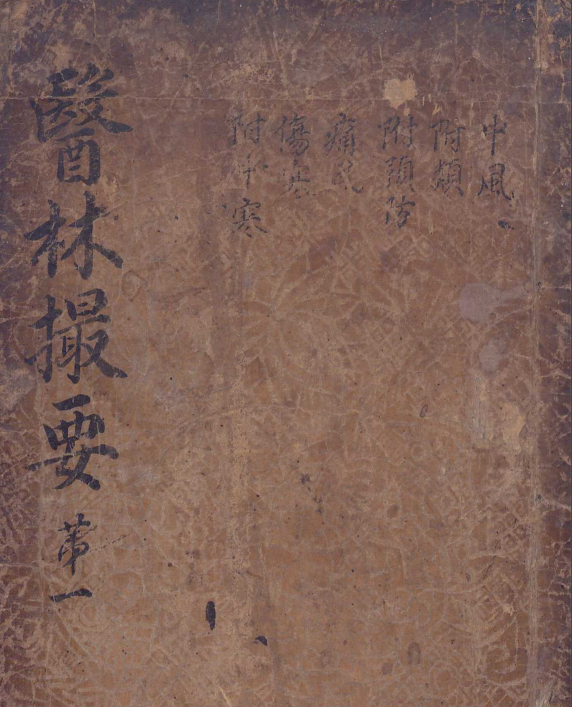 中風
附類
附預防
痛風
傷寒
附中寒
醫林撮要 苐一